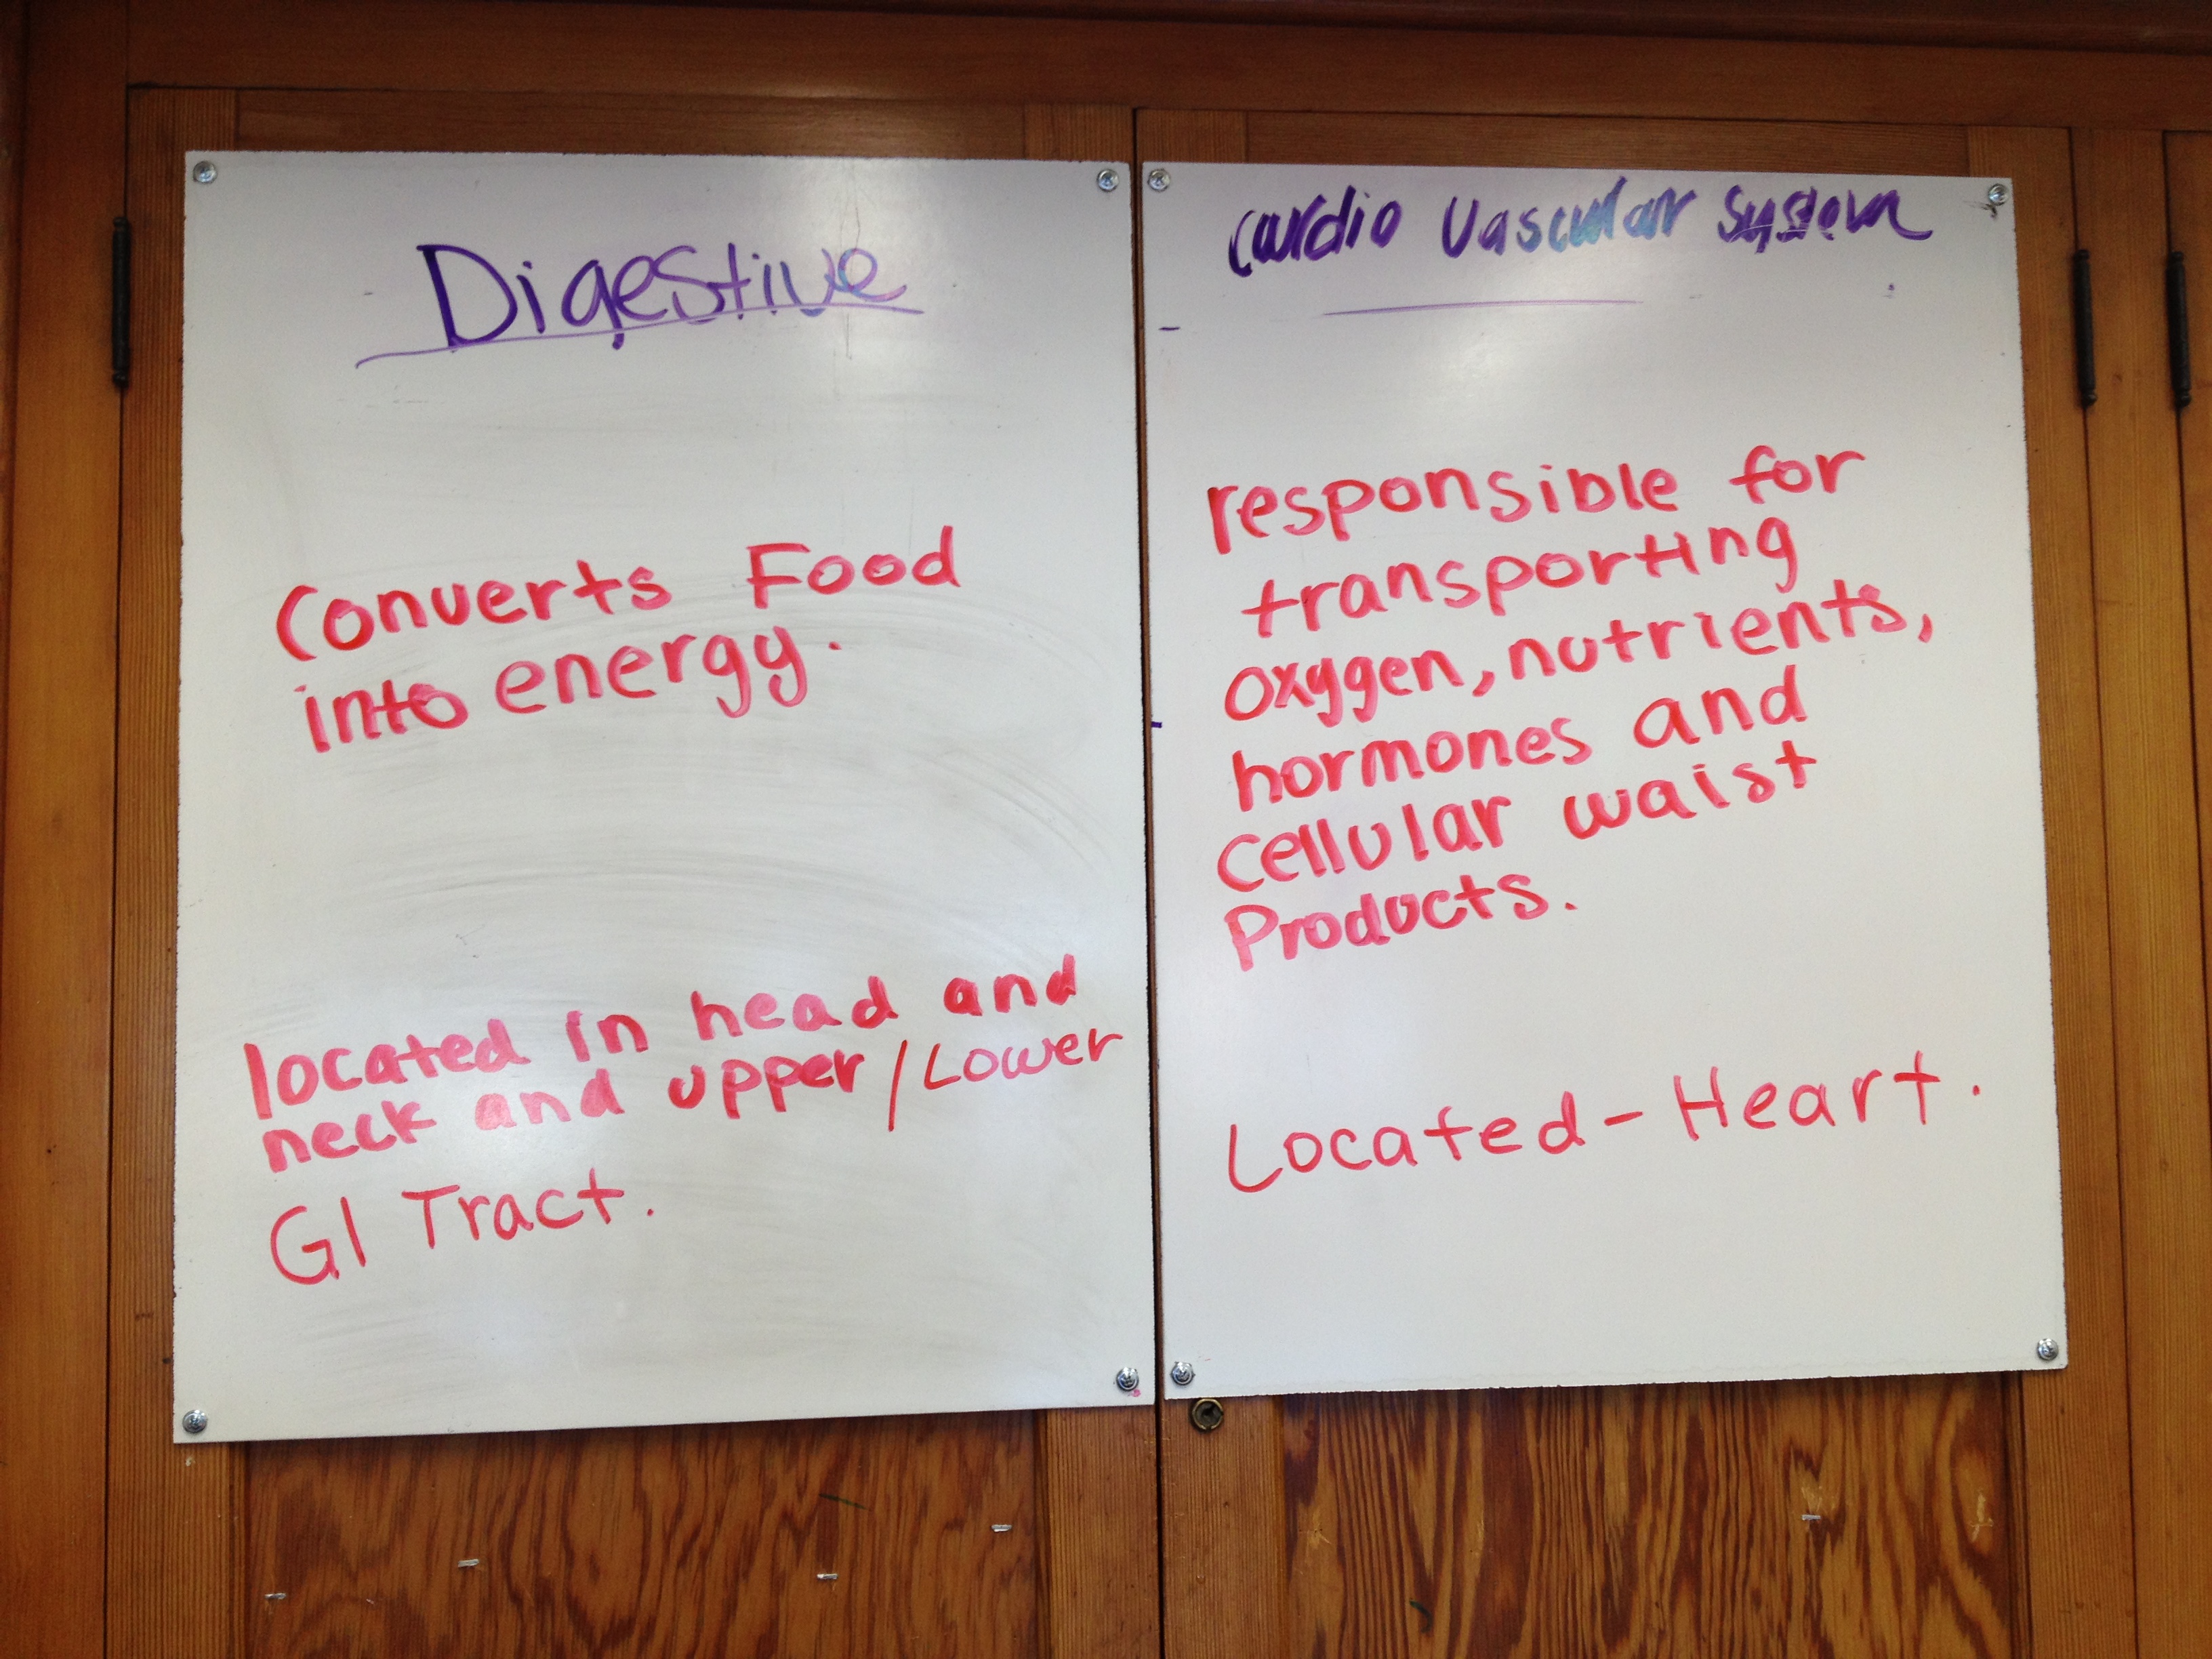 Digestive
Converts Food
into energy.
located in head and
neck and upper/Lower
GI Tract.
Cardio Vascular System
responsible for
transporting
oxygen, nutrients,
hormones and
cellular waist
Products.
Located - Heart.